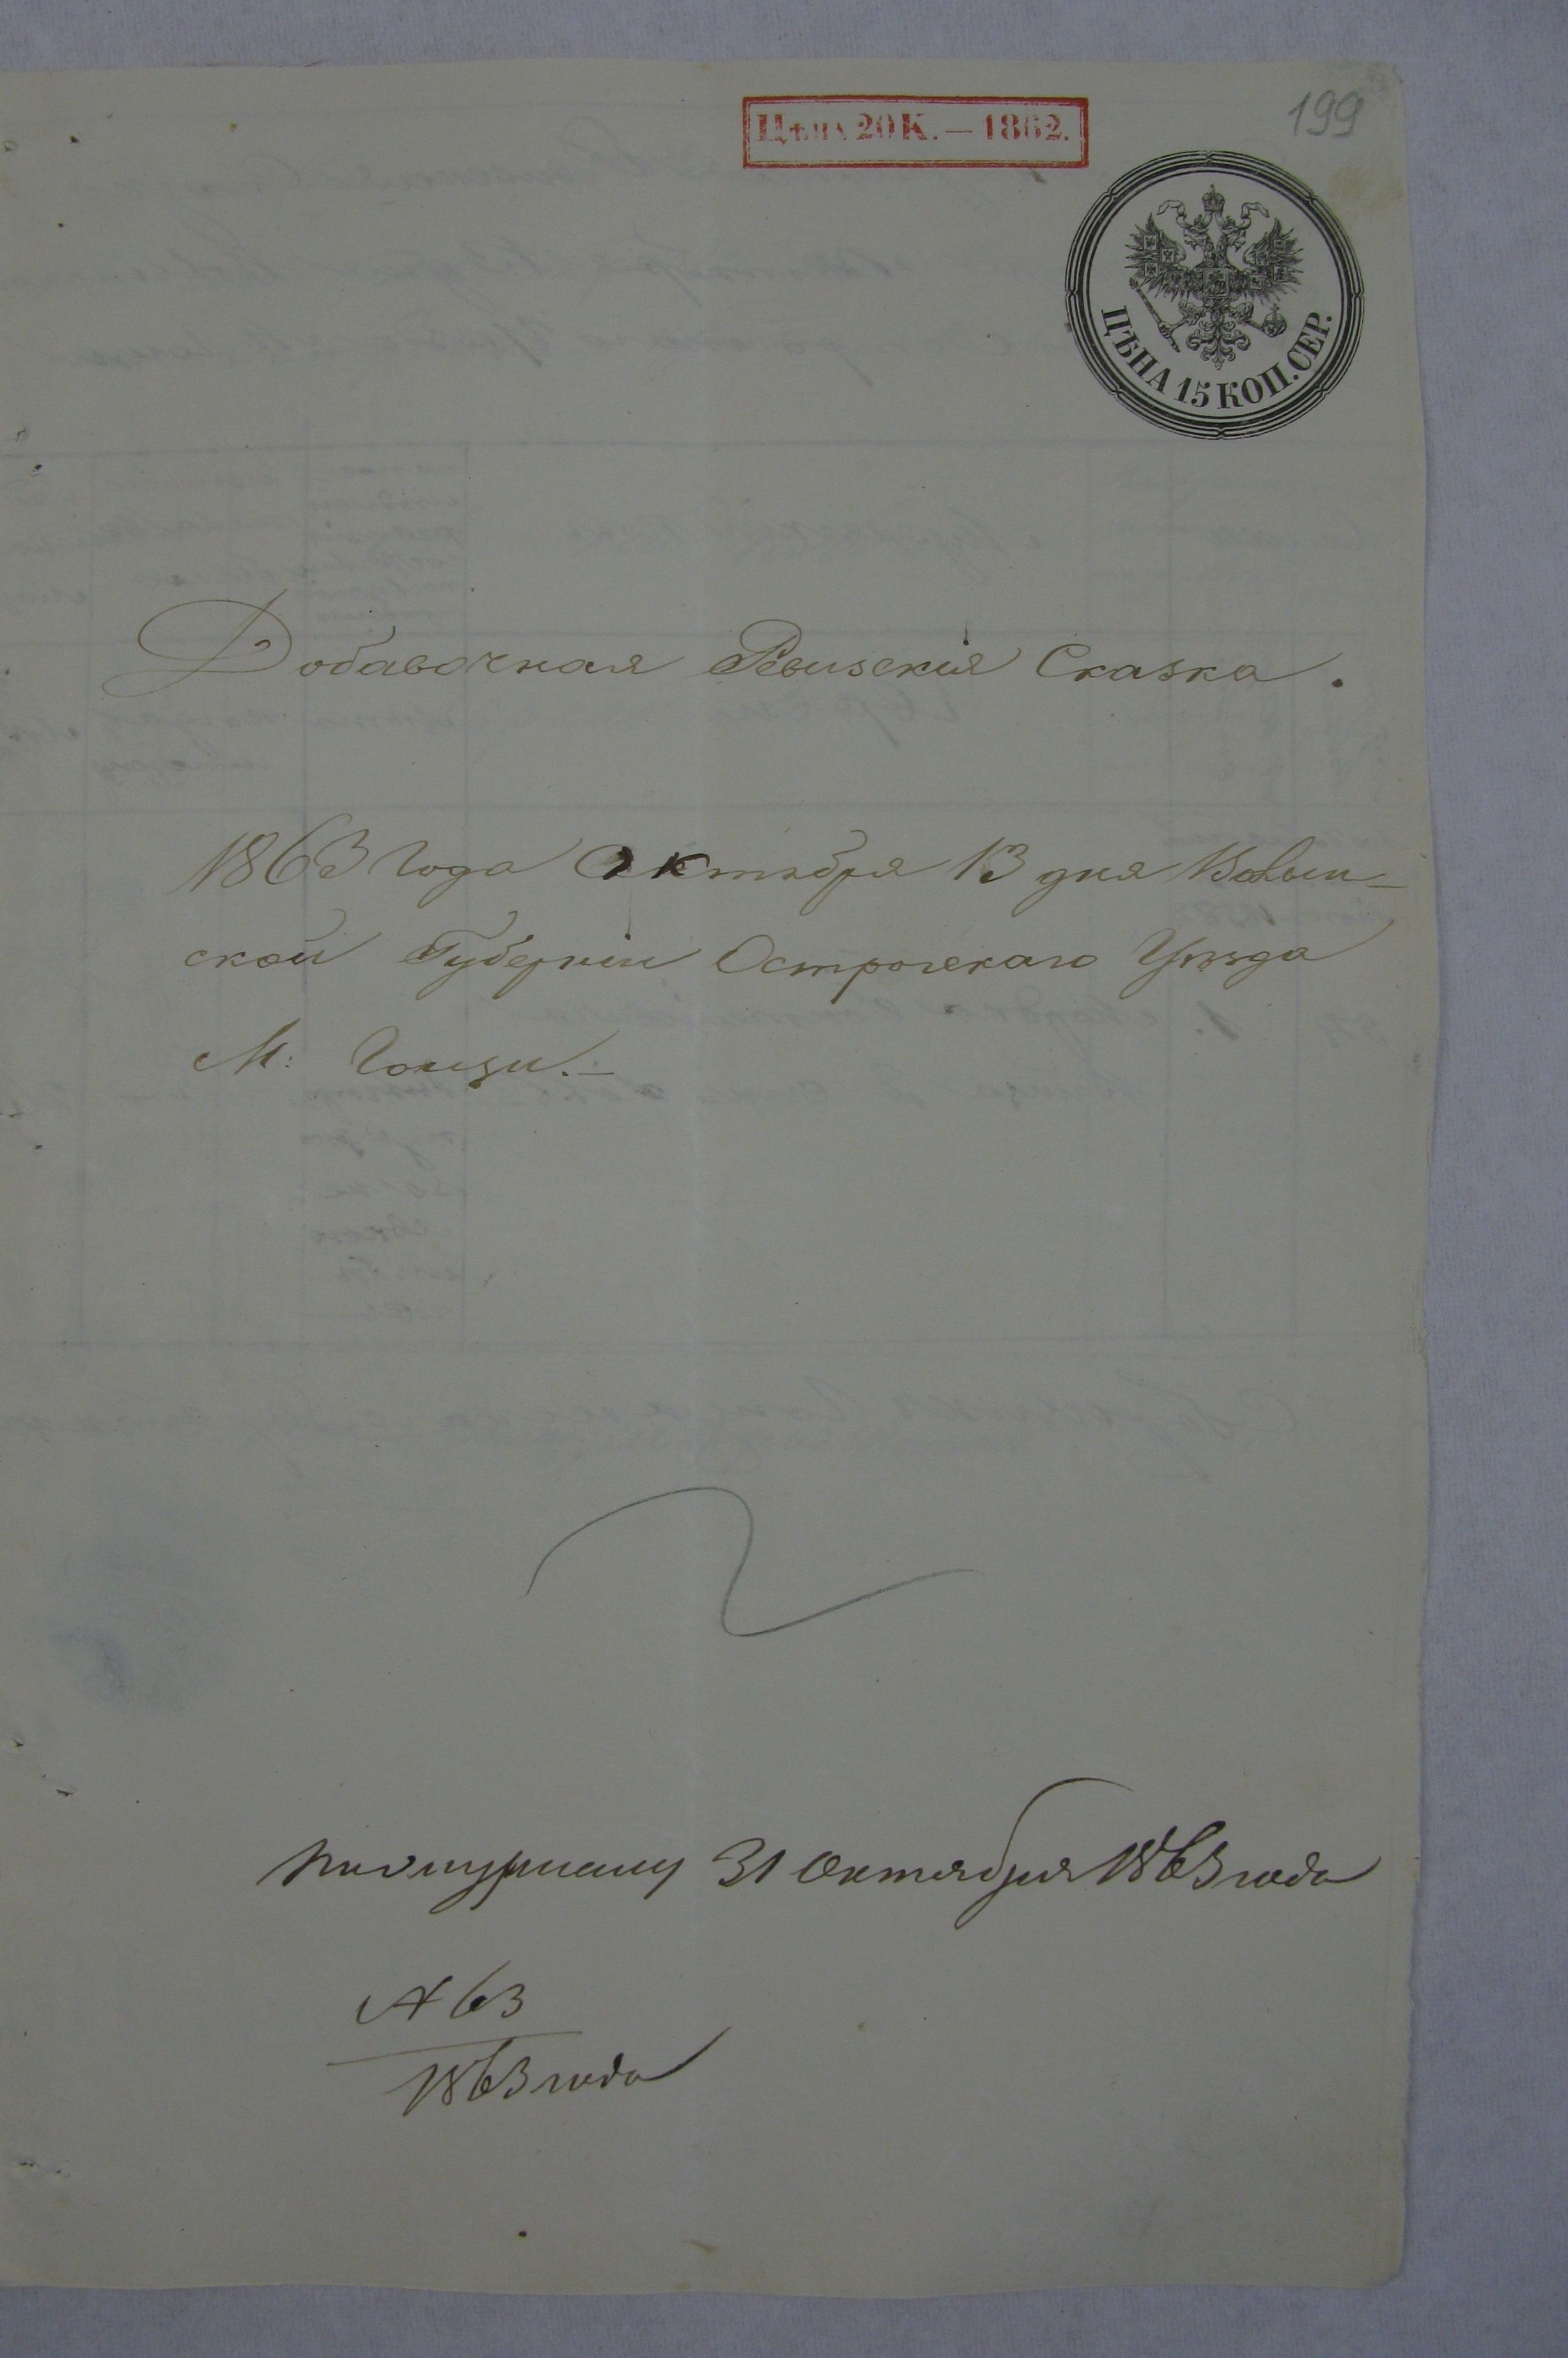 199
Цѣна 20 К. — 1862.
ЦѢНА 15 КОП. СЕР.
Добавочная Ревизскія Сказка.
1863 Года Октября 13 дня Волын-
ской Губерніи Острогскаго Уѣзда
М: Гощи. —
По журналу 31 Октября 1863 года
№ 63
1863 года